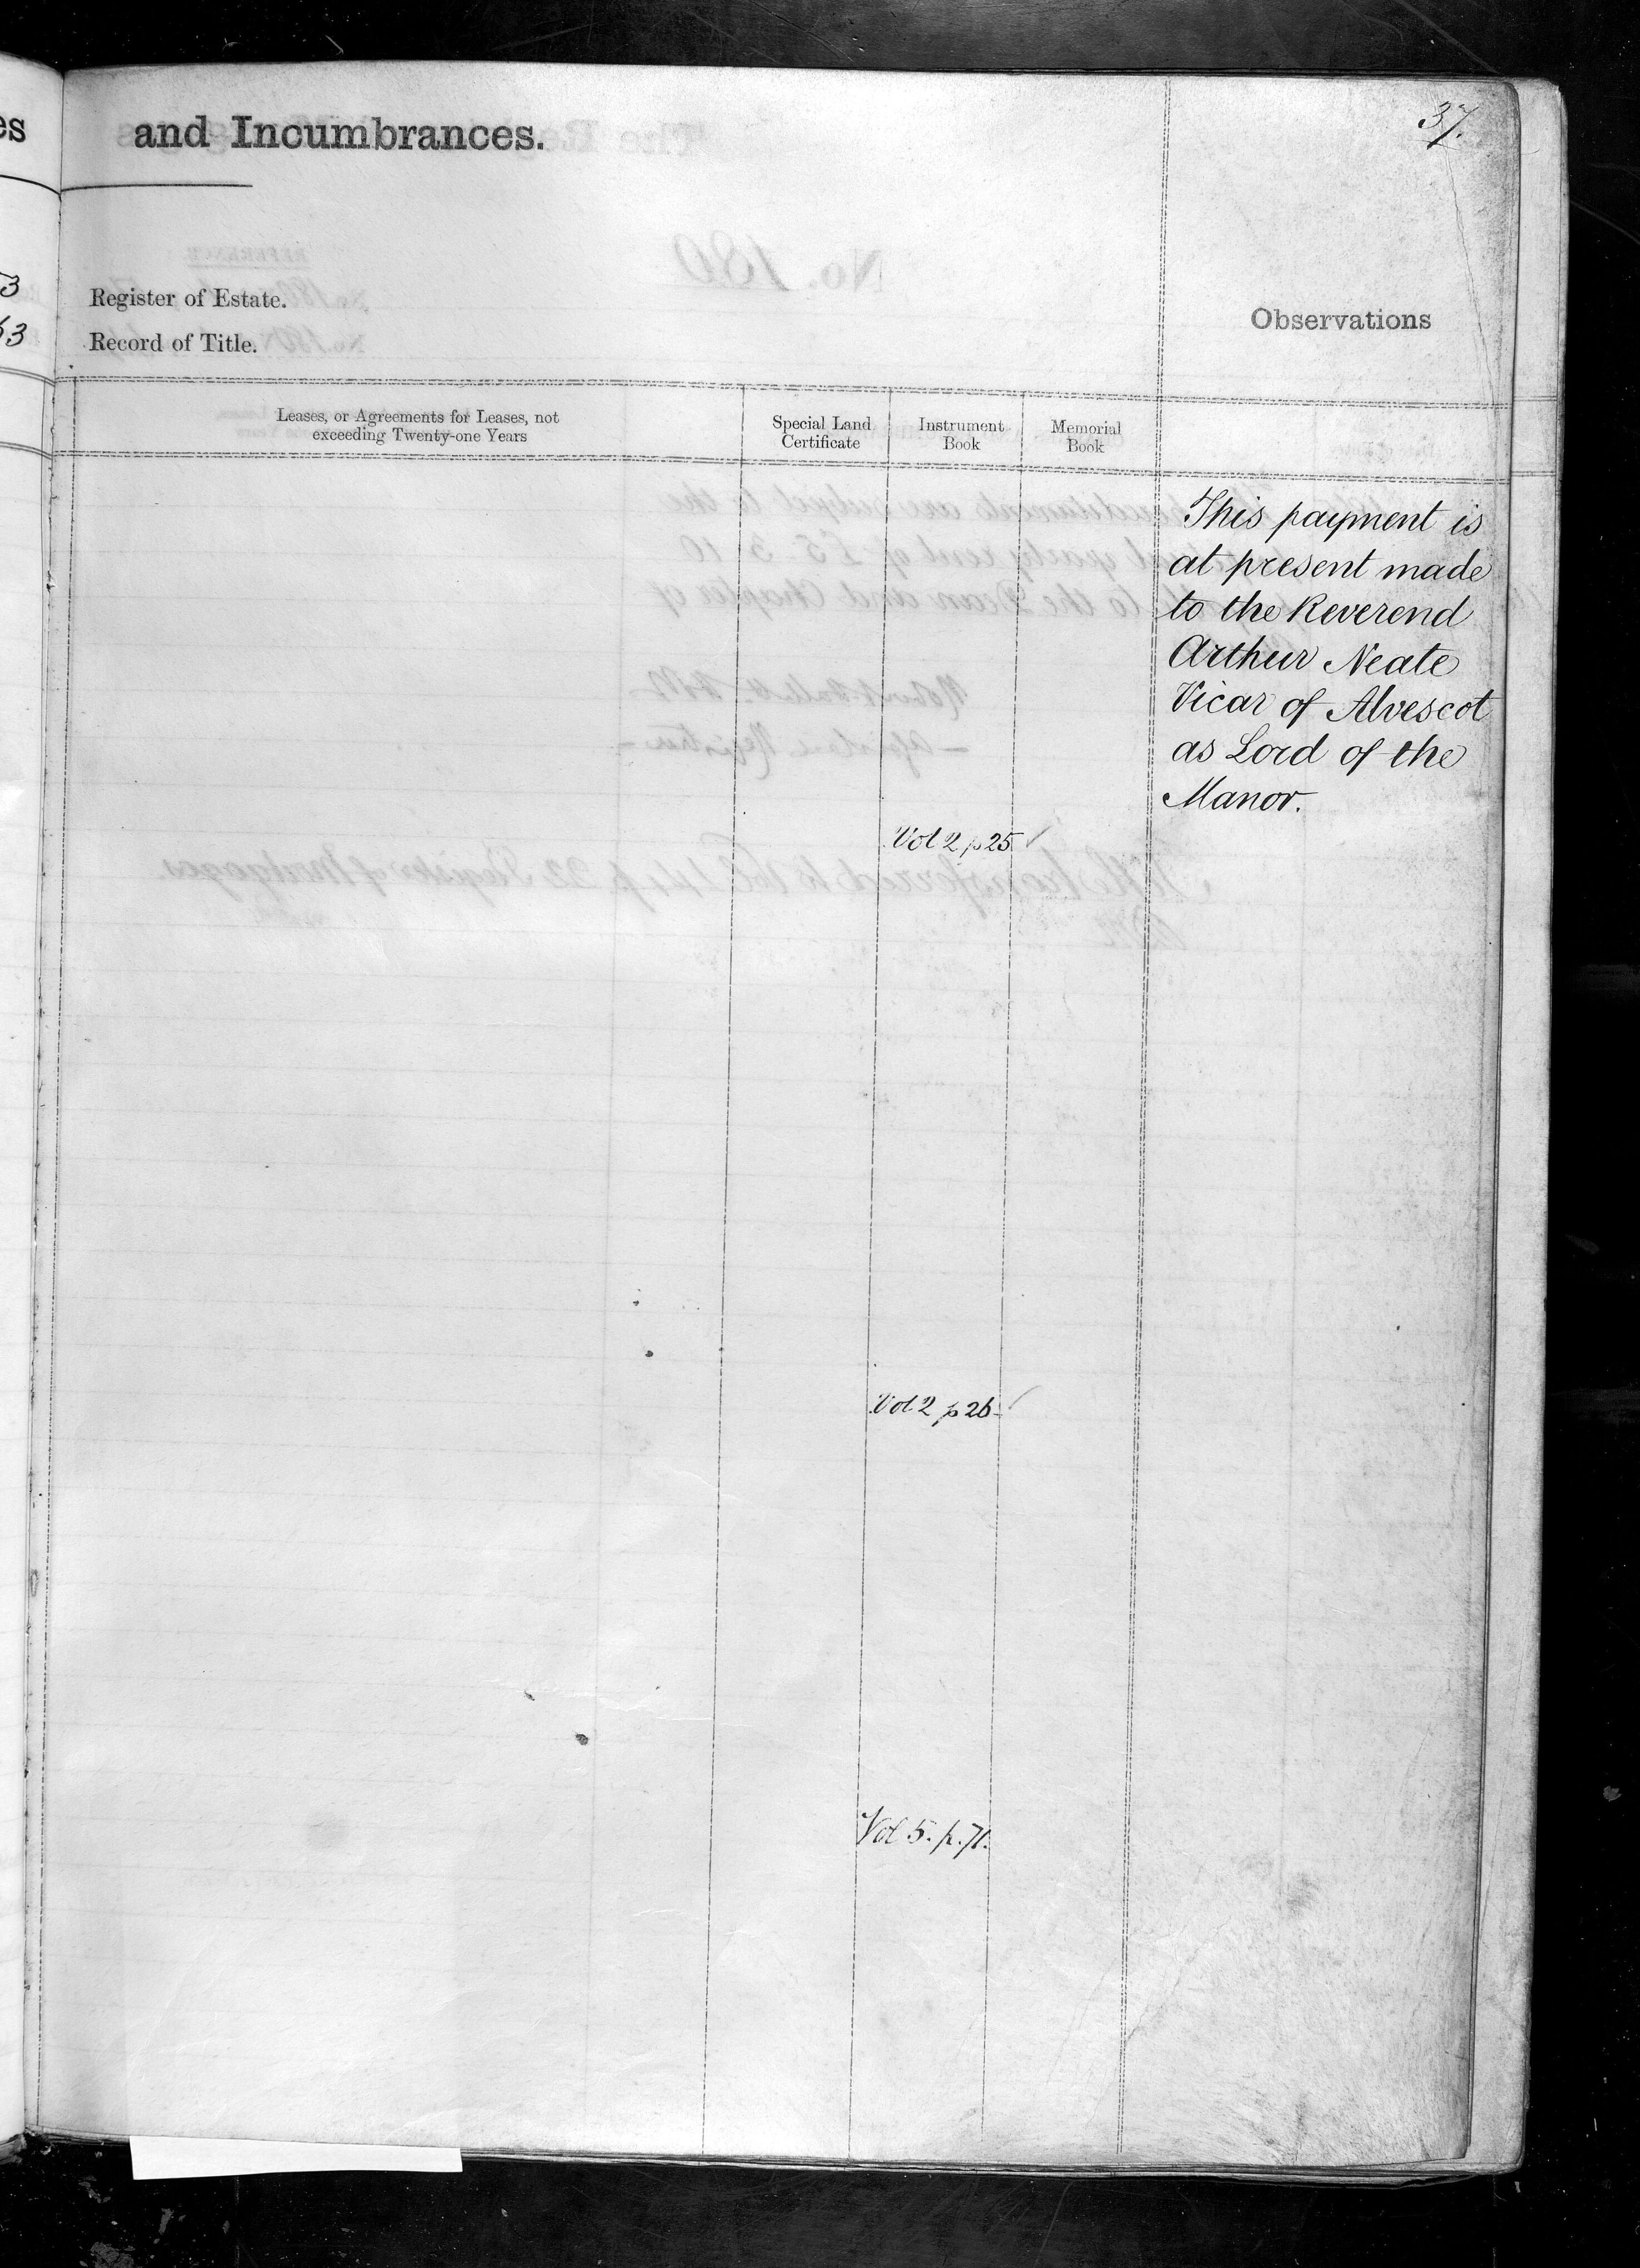 es
and Incumbrances.
37.
3
Register of Estate.
63
Record of Title.
Observations
Leases, or Agreements for Leases, not
exceeding Twenty-one Years
Special Land
Certificate
Instrument
Book
Memorial
Book
This payment is
at present made
to the Reverend
Arthur Neate
Vicar of Alvescot
as Lord of the
Manor.
Vol 2 p 25
Vol 2 p 26
Vol 5. p. 71.